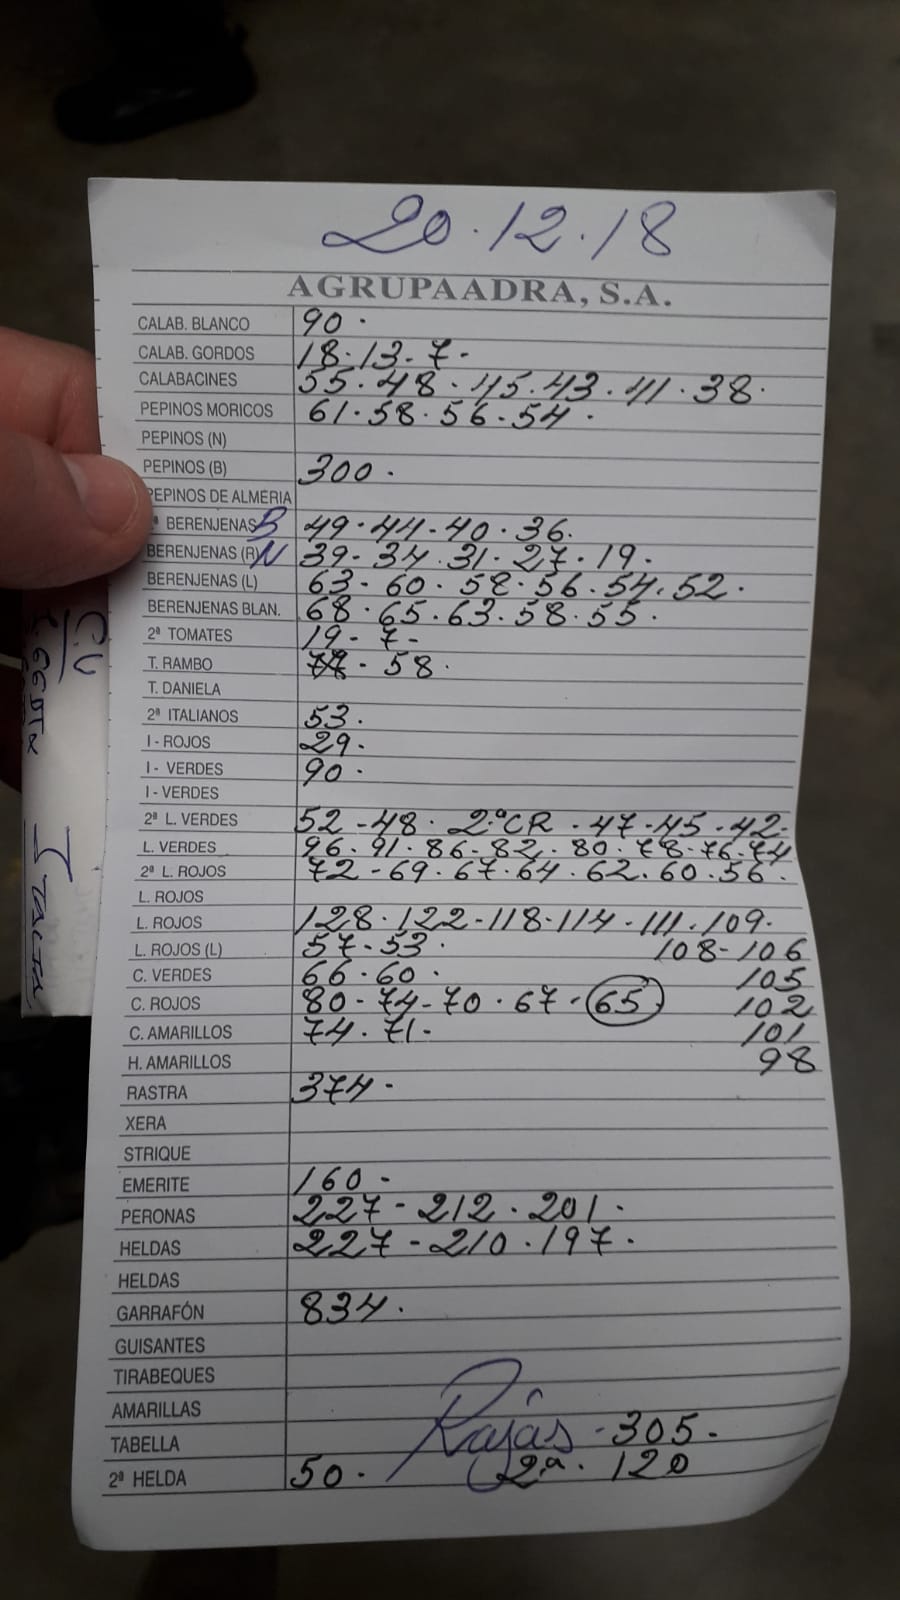 20.12.18
AGRUPAADRA, S.A.
CALAB. BLANCO 90.
CALAB. GORDOS 18.13.7-
CALABACINES 55.48.45.43.41.38.
PEPINOS MORICOS 61.58.56.54.
PEPINOS (N)
PEPINOS (B) 300.
PEPINOS DE ALMERIA
ª BERENJENAS B 49.44-40.36.
BERENJENAS (R) N 39-34.31.27.19.
BERENJENAS (L) 63-60.58.56.54.52.
BERENJENAS BLAN. 68.65.63.58.55.
2ª TOMATES 19-7-
T. RAMBO 58.
T. DANIELA
2ª ITALIANOS 53.
I - ROJOS 29.
I - VERDES 90.
I - VERDES
2ª L. VERDES 52-48. 2ªCR.47-45.42-
L. VERDES 96.91.86-82.80.78.76.74
2ª L. ROJOS 72-69.67.64.62.60.56.
L. ROJOS
L. ROJOS 128.122-118-114-111.109.
L. ROJOS (L) 57-53. 108-106
C. VERDES 66.60. 105
C. ROJOS 80-74-70.67-65 102
C. AMARILLOS 74.71- 101
H. AMARILLOS 98
RASTRA 374-
XERA
STRIQUE
EMERITE 160-
PERONAS 227-212.201.
HELDAS 227-210.197.
HELDAS
GARRAFÓN 834.
GUISANTES
TIRABEQUES
AMARILLAS
TABELLA Rajas-305-
2ª HELDA 50. 2ª.120
C.V